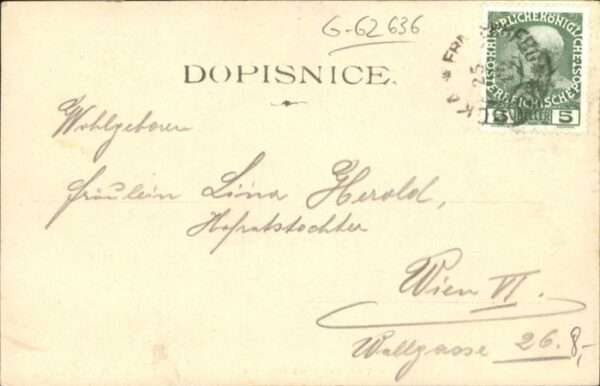 G-62636
DOPISNICE.
KAISERLICHEKÖNIGLICHE
ÖSTERREICHISCHEPOST
5 5
Wohlgeboren
Fräulein Lina Herold,
Hofratstochter
Wien VI.
Wallgasse 26.
8,-